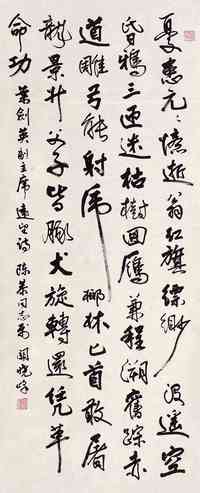 憂患元元憶逝翁紅旗縹緲沒遙空
昏鴉三匝迷枯樹回雁兼程溯舊踪赤
道雕弓能射虎椰林匕首敢屠
龍景升父子皆豚犬旋轉還憑革
命功 葉劍英副主席遠望詩 陳 同志